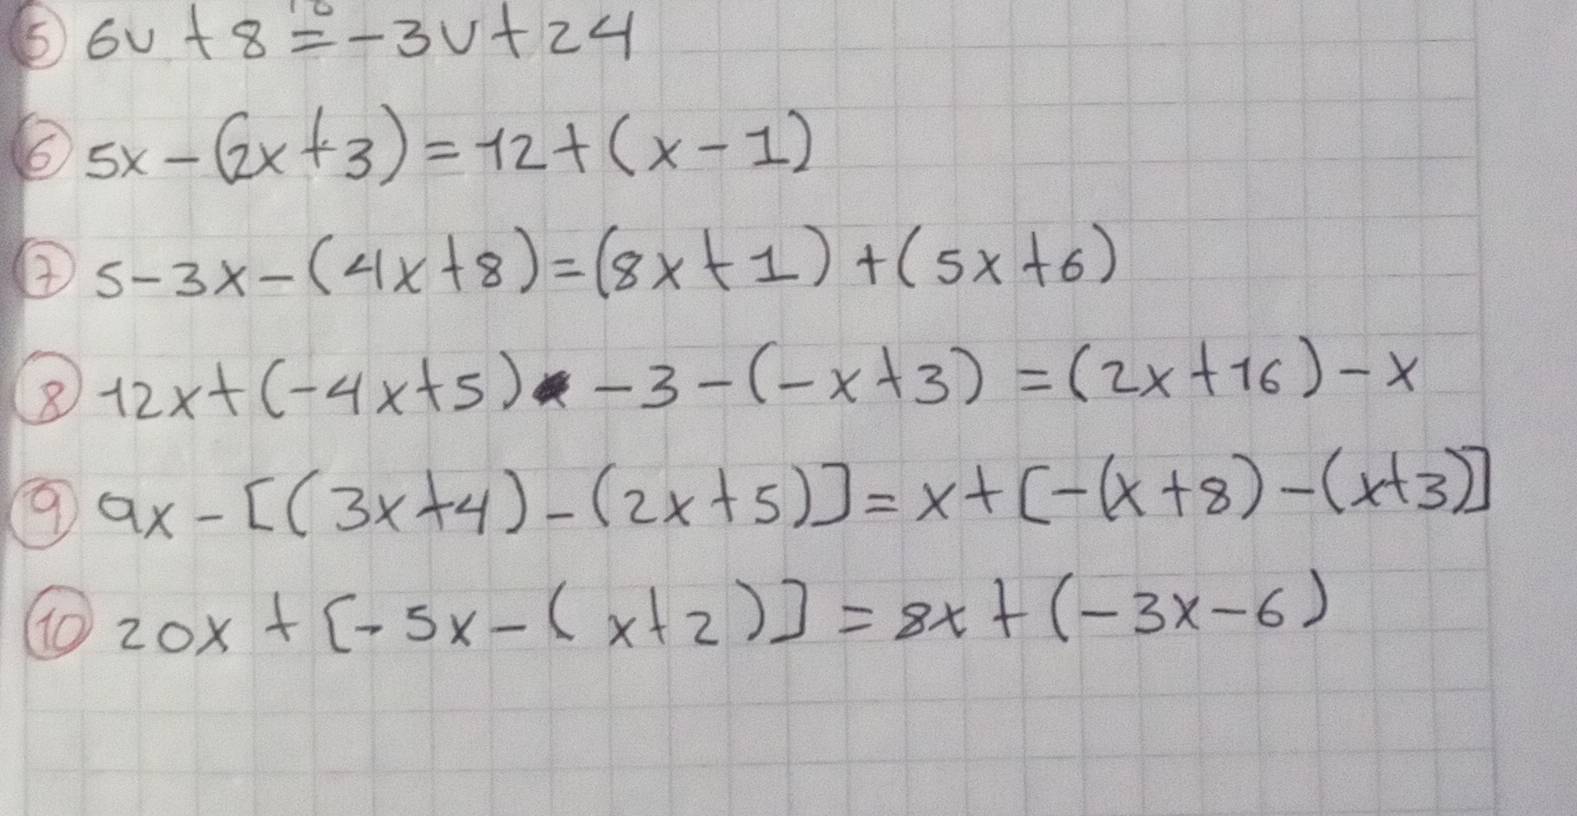 5 6v + 8 = -3v + 24
6 5x - (2x + 3) = 12 + (x - 1)
7 5 - 3x - (4x + 8) = (8x + 1) + (5x + 6)
8 12x + (-4x + 5) - 3 - (-x + 3) = (2x + 16) - x
9 9x - [(3x + 4) - (2x + 5)] = x + [-(x + 8) - (x + 3)]
10 20x + [-5x - (x + 2)] = 8x + (-3x - 6)